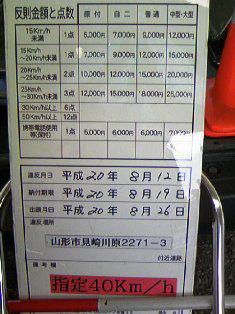 反則金額と点数
原付 自二 普通 中型・大型
15Km/h未満 1点 6,000円 7,000円 9,000円 12,000円
15Km/h～20Km/h未満 1点 7,000円 9,000円 12,000円 15,000円
20Km/h～25Km/h未満 2点 10,000円 12,000円 15,000円 20,000円
25Km/h 3点 12,000円 15,000円 18,000円 25,000円
30Km/h以上 6点
50Km/h以上 12点
携帯電話使用等(保持) 1点 5,000円 6,000円 6,000円
違反日 平成20年 8月12日
納付期限 平成20年 8月19日
出頭月日 平成20年 8月26日
違反場所
山形市見崎川原2271-3
付近道路
備考欄
指定40Km/h